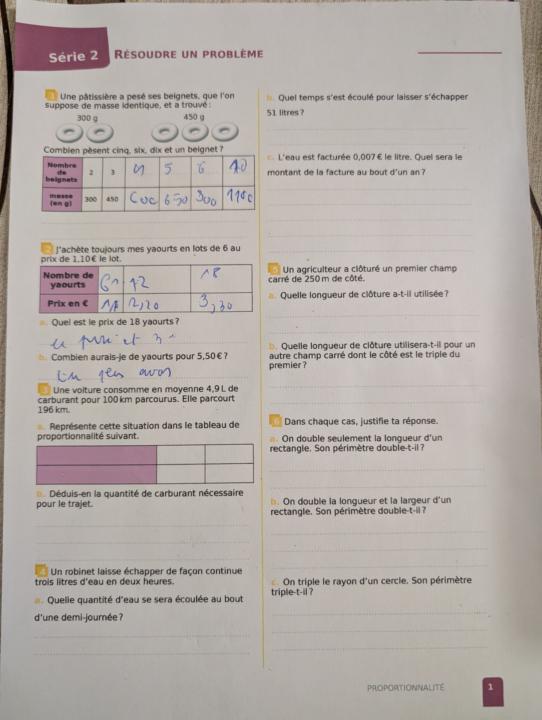 Série 2 RÉSOUDRE UN PROBLÈME
1 Une pâtissière a pesé ses beignets, que l'on
suppose de masse identique, et a trouvé :
300 g 450 g
Combien pèsent cinq, six, dix et un beignet ?
Nombre de beignets 2 3 5 6 10
masse (en g) 300 450
2 J'achète toujours mes yaourts en lots de 6 au
prix de 1,10 € le lot.
Nombre de yaourts 6 12 18
Prix en € 2,20 3,30
a. Quel est le prix de 18 yaourts ?
b. Combien aurais-je de yaourts pour 5,50 € ?
3 Une voiture consomme en moyenne 4,9 L de
carburant pour 100 km parcourus. Elle parcourt
196 km.
a. Représente cette situation dans le tableau de
proportionnalité suivant.
b. Déduis-en la quantité de carburant nécessaire
pour le trajet.
4 Un robinet laisse échapper de façon continue
trois litres d'eau en deux heures.
a. Quelle quantité d'eau se sera écoulée au bout
d'une demi-journée ?
b. Quel temps s'est écoulé pour laisser s'échapper
51 litres ?
c. L'eau est facturée 0,007 € le litre. Quel sera le
montant de la facture au bout d'un an ?
5 Un agriculteur a clôturé un premier champ
carré de 250 m de côté.
a. Quelle longueur de clôture a-t-il utilisée ?
b. Quelle longueur de clôture utilisera-t-il pour un
autre champ carré dont le côté est le triple du
premier ?
6 Dans chaque cas, justifie ta réponse.
a. On double seulement la longueur d'un
rectangle. Son périmètre double-t-il ?
b. On double la longueur et la largeur d'un
rectangle. Son périmètre double-t-il ?
c. On triple le rayon d'un cercle. Son périmètre
triple-t-il ?
PROPORTIONNALITÉ 1